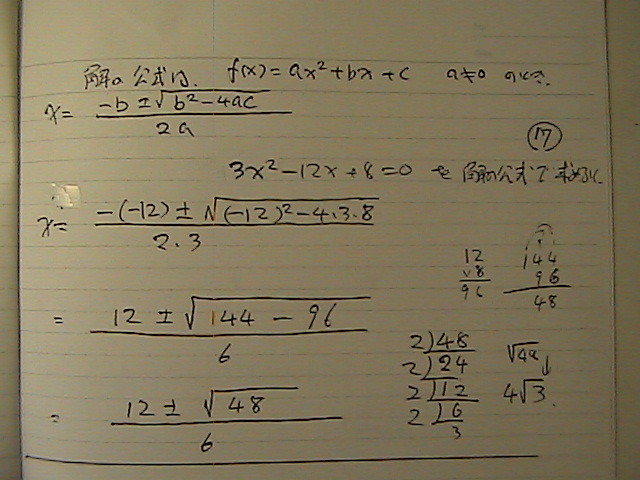 解の公式は、 f(x)=ax²+bx+c a≠0 のとき
x= (-b±√(b²-4ac))/2a
⑰
3x²-12x+8=0 を 解の公式で求めると
x= (-(-12)±√((-12)²-4.3.8))/2.3
= (12±√(144-96))/6
= (12±√48)/6
12
×8
96
144
96
48
2)48
2)24
2)12
2)6
3
↓
4√3.